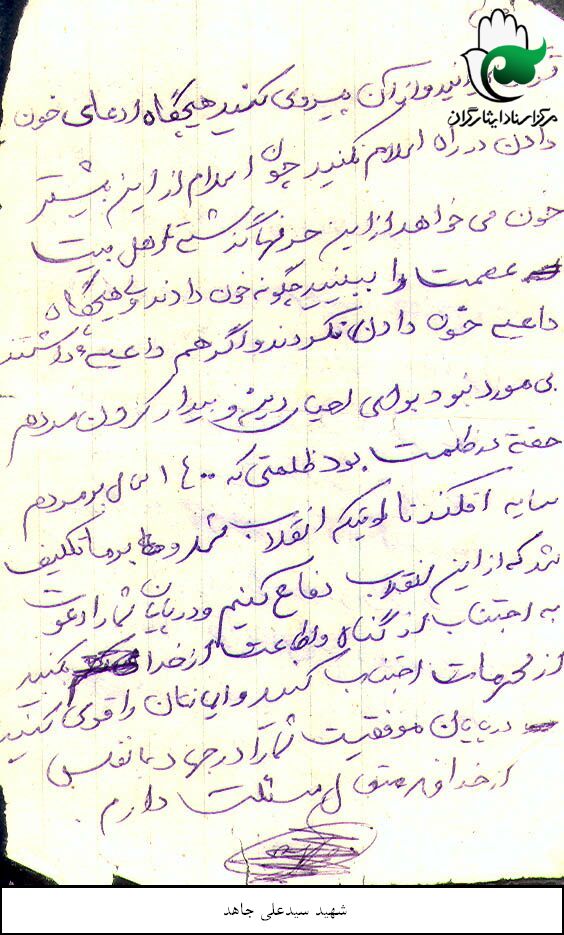 مرکز اسناد ایثارگران
وازآن پیروی کنید هیچگاه ادعای خون
دادن در راه اسلام نکنید چون اسلام از این بیشتر
خون می خواهد ازاین حرفها گذشته اهل بیت
عصمت را ببینید چگونه خون دادند ولی هیچگاه
داعیه خون دادن نکردند و اگر هم داعیه داشتند
بی مورد نبود برای احیای دین و بیدار کردن مردم
خفته در ظلمت بود ظلمتی که ۱۴۰۰ سال بر مردم
سایه افکند تا اینکه انقلاب شد و برما تکلیف
شد که از این انقلاب دفاع کنیم و در پایان شما را دعوت
به اجتناب از گناه و اطاعت از خدا کنید
از محرمات اجتناب کنید و ایمانتان را قوی کنید
در پایان موفقیت شما را در جهاد با نفس
از خداوند متعال مسئلت دارم
شهید سیدعلی جاهد